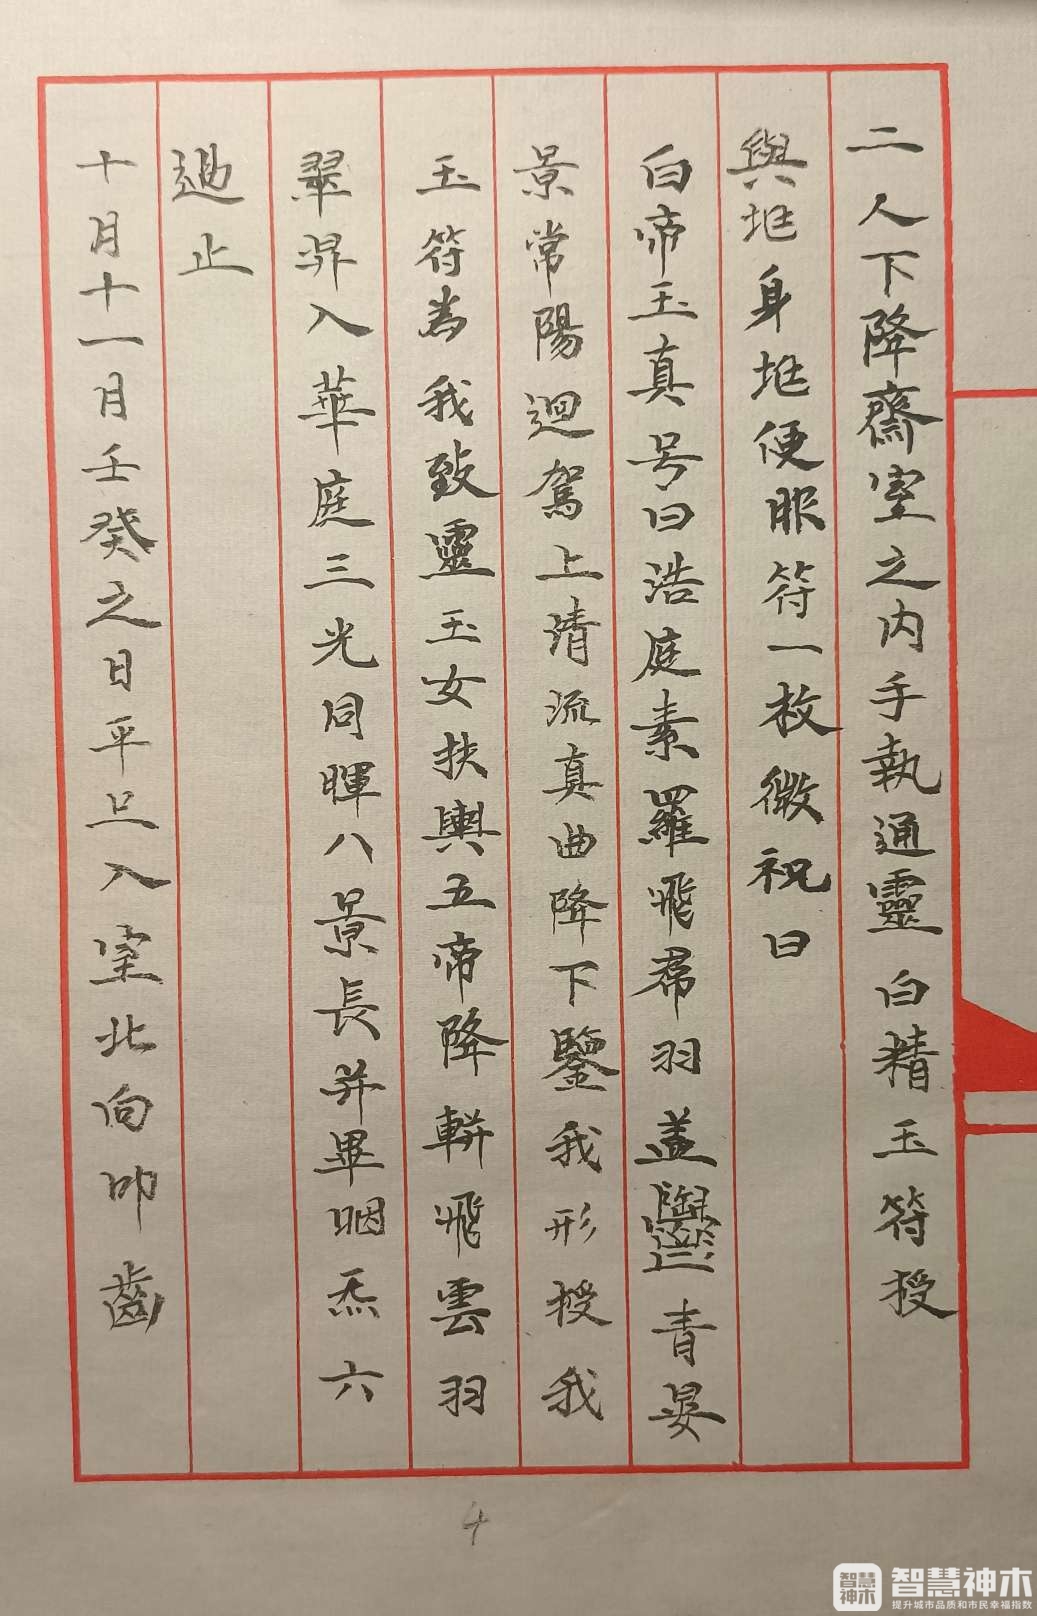 二人下降齋室之内手執通靈白精玉符授
與𡊮身𡊮便服符一枚微祝曰
白帝玉真号曰浩庭素羅飛帬羽蓋鬱青晏
景常陽迴駕上清流真曲降下鑒我形授我
玉符為我致靈玉女扶輿五帝降軿飛雲羽
翠昇入華庭三光同暉八景長并畢咽炁六
過止
十月十一月壬癸之日平旦入室北向叩齒
4
智慧神木
智慧神木
提升城市品质和市民幸福指数